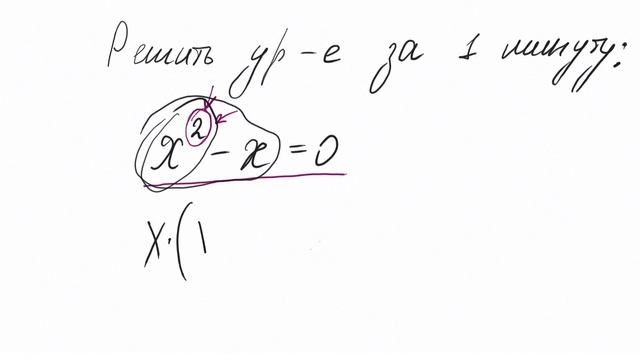 Решить ур-е за 1 минуту:
x² - x = 0
x·(1